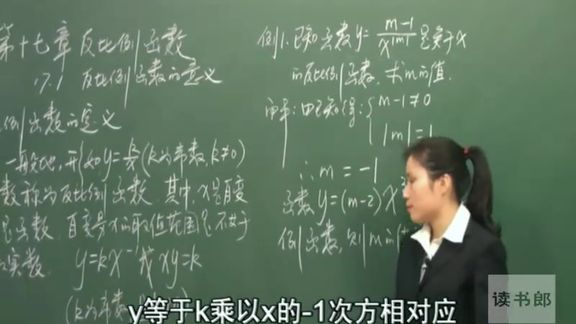 第十七章 反比例函数
17.1 反比例函数的意义
例函数的定义
一般地,形如y=k/x(k为常数,k≠0)
数称为反比例函数.其中,x是自变
是函数.自变量x的取值范围是不等于
实数.
y=kx⁻¹或xy=k
(k为常数
例1.已知函数y=m-1/x^|m|是关于x
的反比例函数,求m的值.
解:由已知得:{m-1≠0
|m|=1
∴m=-1
函数y=(m-2)x
例函数,则m的
读书郎
y等于k乘以x的-1次方相对应